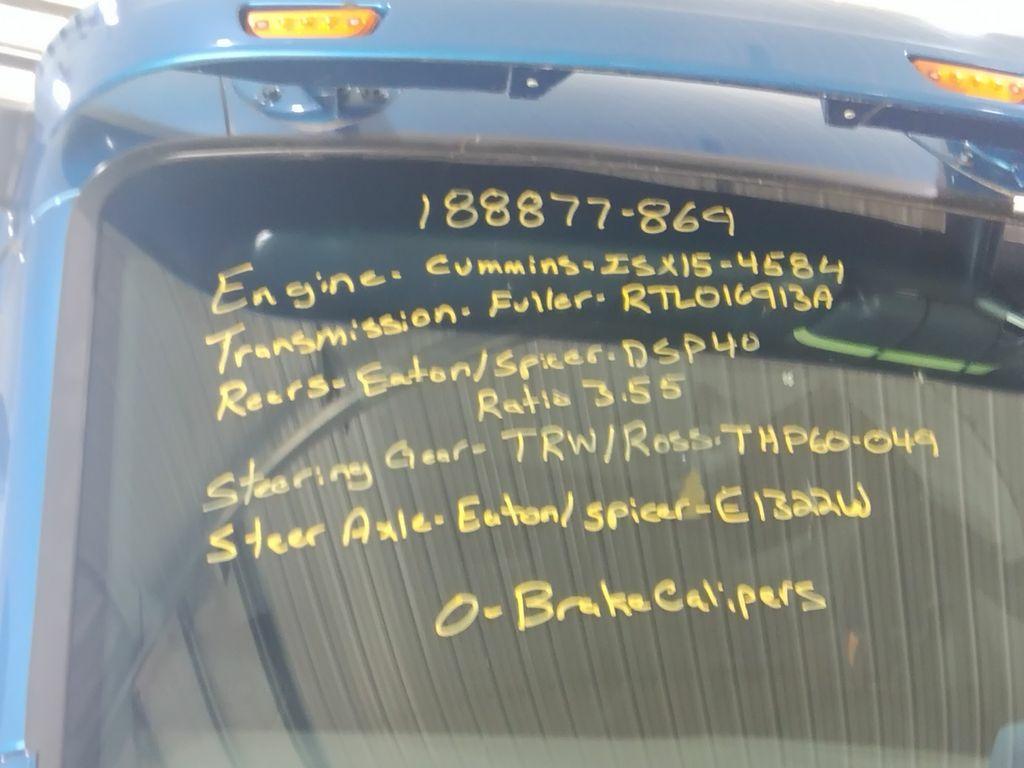 188877-869
Engine- Cummins-ISX15-4584
Transmission- Fuller- RTLO16913A
Rears-Eaton/Spicer-DSP40
Ratio 3.55
Steering Gear- TRW/Ross-THP60-049
Steer Axle-Eaton/spicer-E1322W
0-Brake Calipers